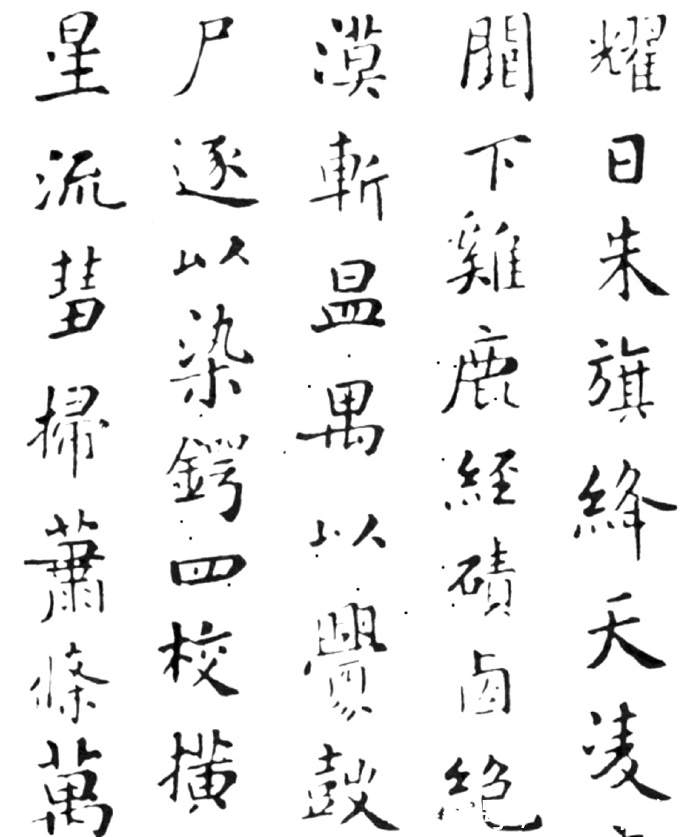 耀日朱旗絳天凌
闕下雞鹿經磧鹵絕
漠斬昷禺以釁鼓
尸逐以染鍔四校橫
星流彗掃蕭條萬